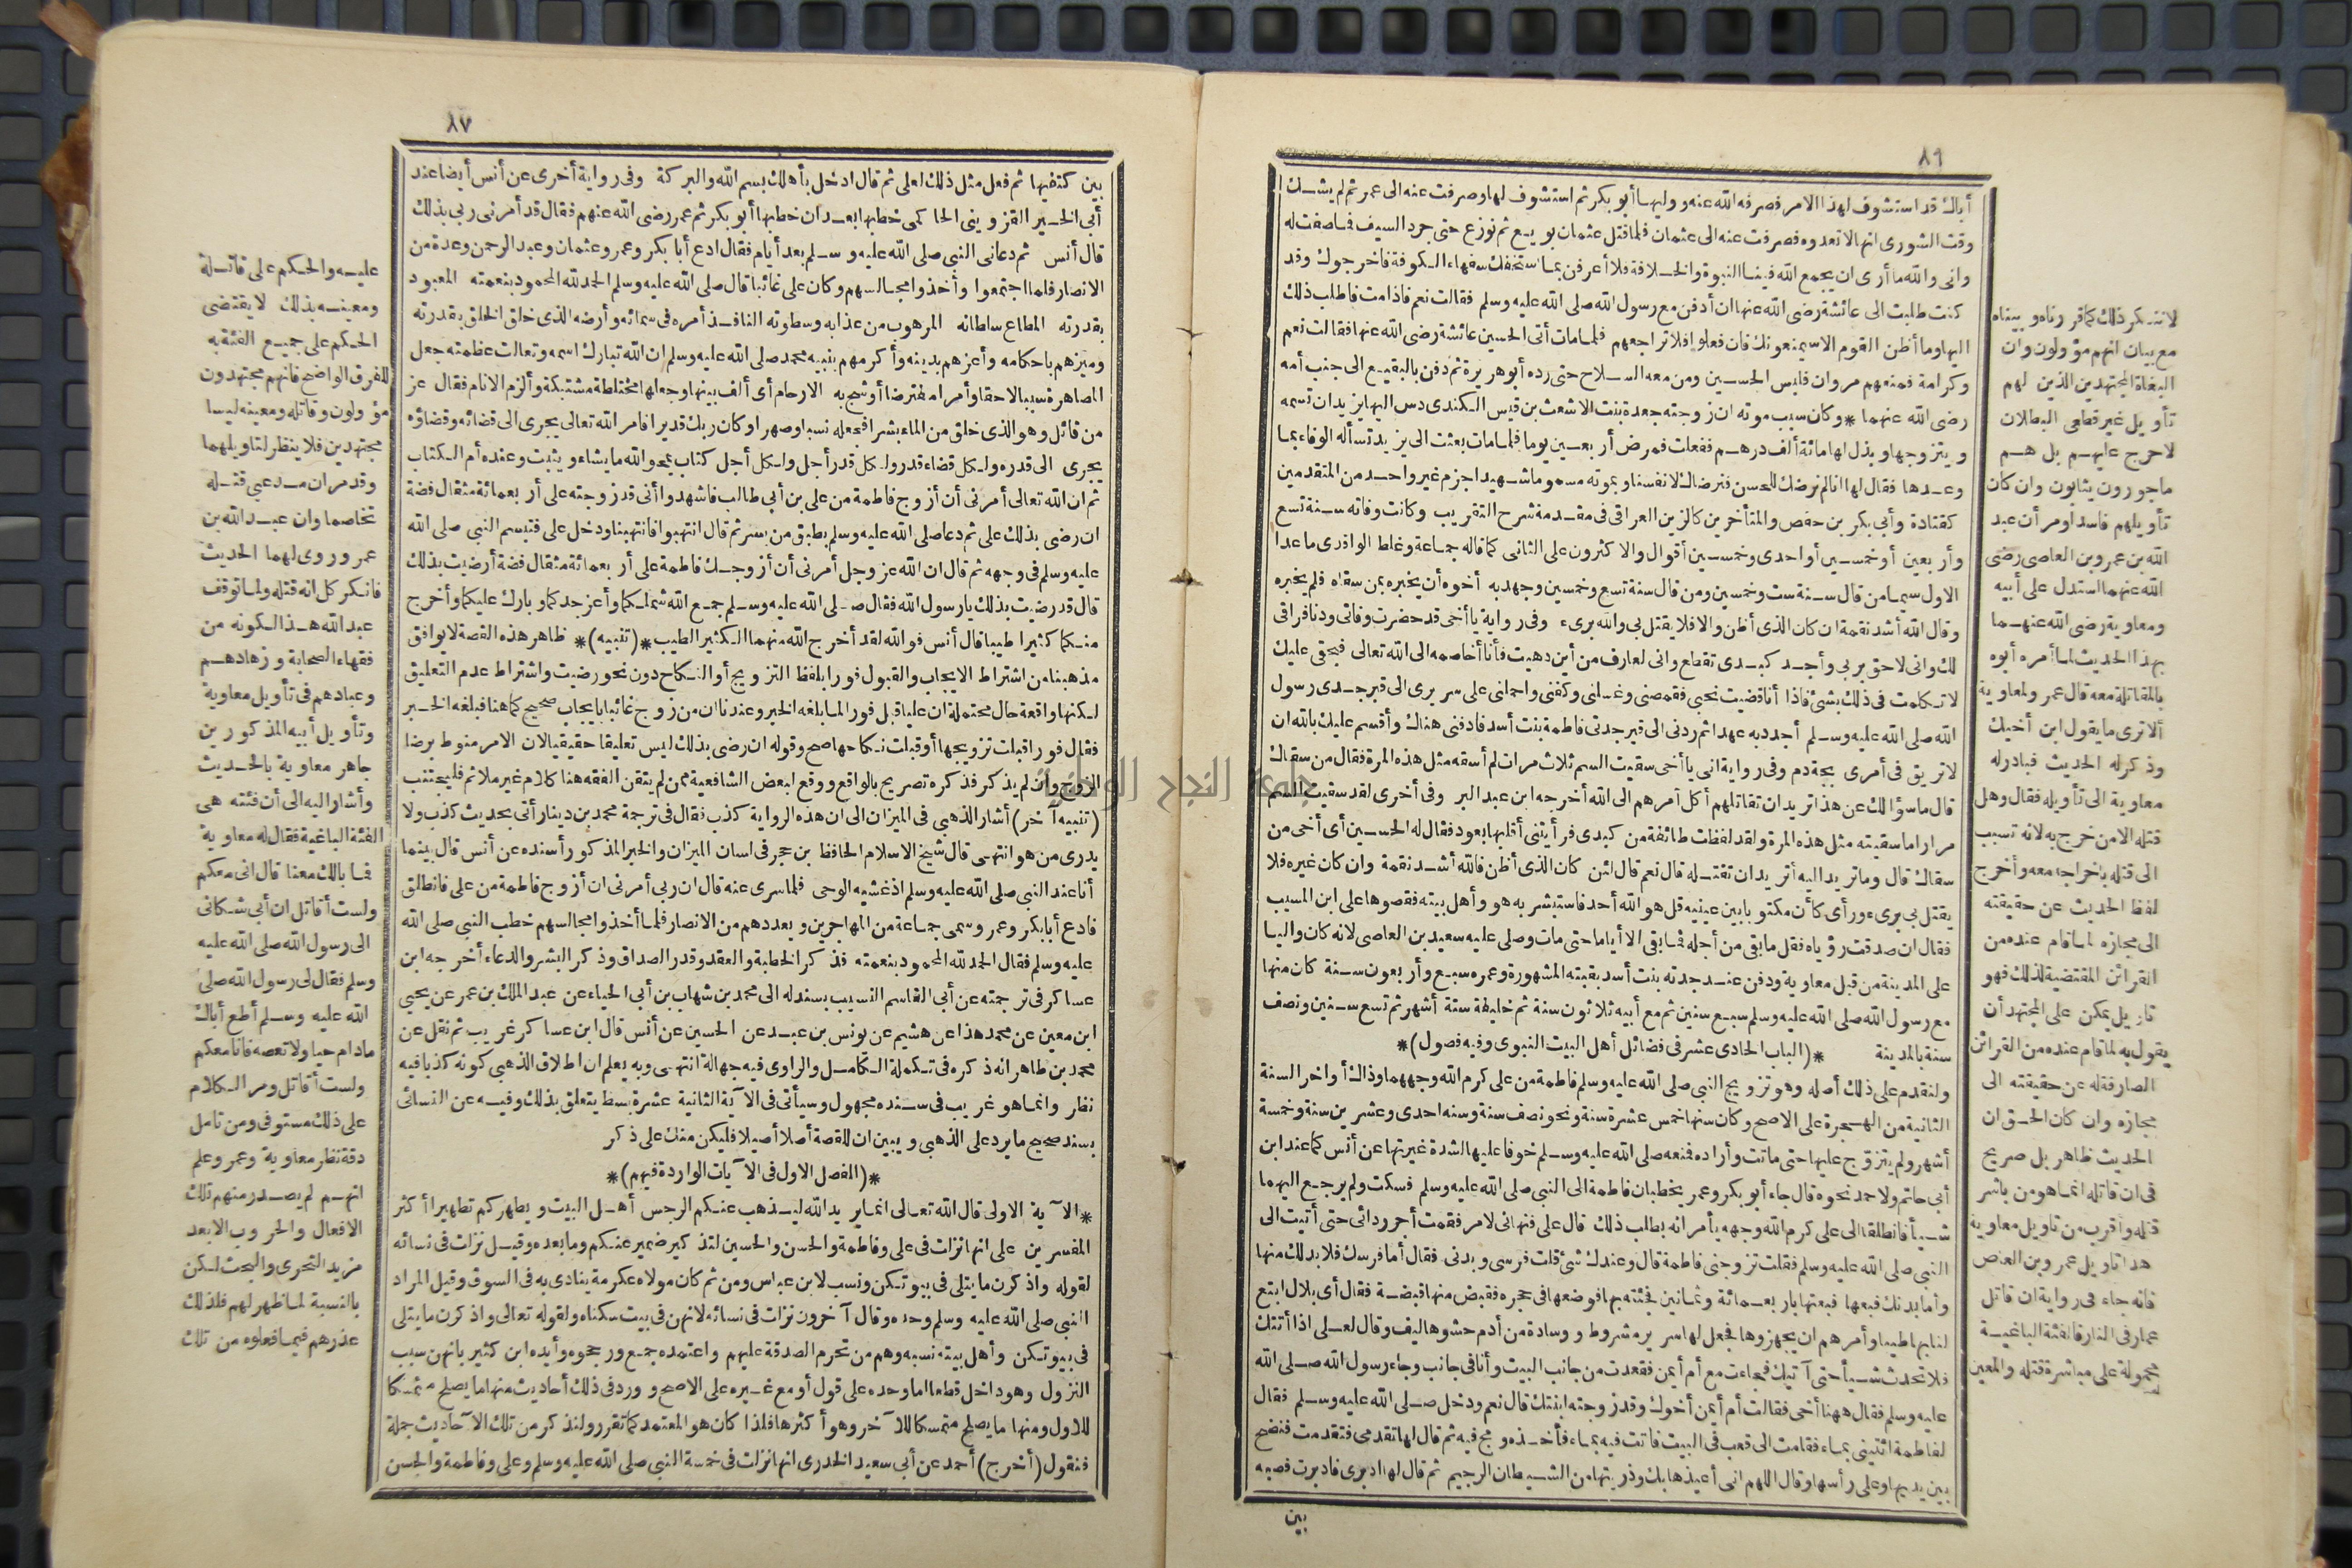 ٨٦
أباك قد استشوف لهذا الامر فصرفه الله عنه ووليها أبو بكر ثم استشوف لها وصرفت عنه الى عمر ثم لم يشك
وقت الشورى انها لا تعدوه فصرفت عنه الى عثمان فلما قتل عثمان بويع ثم نوزع حتى جرد السيف فما صفت له
وانى والله ما أرى ان يجمع الله فينا النبوة والخلافة فلا أعرفن بما استخفك سفهاء الكوفة فاخرجوك وقد
كنت طلبت الى عائشة رضى الله عنها ان أدفن مع رسول الله صلى الله عليه وسلم فقالت نعم فاذا مت فاطلب ذلك
اليها وما أظن القوم الا سيمنعونك فان فعلوا فلا تراجعهم فلما مات أتى الحسين عائشة رضى الله عنها فقالت نعم
وكرامة فمنعهم مروان فلبس الحسين ومن معه السلاح حتى رده أبو هريرة ثم دفن بالبقيع الى جنب أمه
رضى الله عنهما * وكان سبب موته ان زوجته جعدة بنت الاشعث بن قيس الكندى دس اليها يزيد ان تسمه
ويتزوجها وبذل لها مائة ألف درهم ففعلت فمرض أربعين يوما فلما مات بعثت الى يزيد تسأله الوفاء بما
وعدها فقال لها انا لم نرضك للحسن فنرضاك لانفسنا وبموته مسموما شهيدا جزم غير واحد من المتقدمين
كقتادة وأبى بكر بن حفص والمتأخرين كالزين العراقى فى مقدمة شرح التقريب وكانت وفاته سنة تسع
وأربعين أو خمسين أو احدى وخمسين أقوال والاكثرون على الثانى كما قاله جماعة وغلط الواقدى ما عدا
الاول سيما من قال سنة ست وخمسين ومن قال سنة تسع وخمسين وجهد به أخوه أن يخبره بمن سقاه فلم يخبره
وقال الله أشد نقمة ان كان الذى أظن والا فلا يقتل بى والله برىء وفى رواية يا أخى قد حضرت وفاتى ودنا فراقى
لك وانى لاحق بربى وأجد كبدى تقطع وانى لعارف من أين دهيت فأنا أخاصمه الى الله تعالى فبحقى عليك
لا تكلمت فى ذلك بشئ فاذا أنا قضيت نحبى فقمصنى وغسلنى وكفنى واحملنى على سريرى الى قبر جدى رسول
الله صلى الله عليه وسلم أجدد به عهدا ثم ردنى الى قبر جدتى فاطمة بنت أسد فادفنى هناك وأقسم عليك بالله ان
لا تريق فى أمرى بحجة دم وفى رواية انى يا أخى سقيت السم ثلاث مرات لم أسقه مثل هذه المرة فقال من سقاك
قال ما سؤالك عن هذا تريد ان تقاتلهم أكل أمرهم الى الله أخرجه ابن عبد البر وفى أخرى لقد سقيت السم
مرارا ما سقيته مثل هذه المرة ولقد لفظت طائفة من كبدى فرأيتنى أقلبها بعود فقال له الحسين أى أخى من
سقاك قال وما تريد اليه أتريد ان تقتله قال نعم قال لئن كان الذى أظن فالله أشد نقمة وان كان غيره فلا
يقتل بى برىء ورأى كأن مكتوبا بين عينيه قل هو الله أحد فاستبشر به هو وأهل بيته فقصوها على ابن المسيب
فقال ان صدقت رؤياه فقل ما بقى من أجله فما بقى الا أياما حتى مات وصلى عليه سعيد بن العاصى لانه كان واليا
على المدينة من قبل معاوية ودفن عند جدته بنت أسد بقبته المشهورة وعمره سبع وأربعون سنة كان منها
مع رسول الله صلى الله عليه وسلم سبع سنين ثم مع أبيه ثلاثون سنة ثم خليفة ستة أشهر ثم تسع سنين ونصف
سنة بالمدينة *(الباب الحادى عشر فى فضائل أهل البيت النبوى وفيه فصول)*
ولنقدم على ذلك أصله وهو تزويج النبى صلى الله عليه وسلم فاطمة من على كرم الله وجههما وذلك أواخر السنة
الثانية من الهجرة على الاصح وكان سنها خمس عشرة سنة ونحو نصف سنة وسنه احدى وعشرين سنة وخمسة
أشهر ولم يتزوج عليها حتى ماتت وأراده فمنعه صلى الله عليه وسلم خوفا عليها لشدة غيرتها عن أنس كما عند ابن
أبى حاتم ولاحمد نحوه قال جاء أبو بكر وعمر يخطبان فاطمة الى النبى صلى الله عليه وسلم فسكت ولم يرجع اليهما
شيأ فانطلقا الى على كرم الله وجهه يأمرانه بطلب ذلك قال على فنبهانى لامر فقمت أجر ردائى حتى أتيت الى
النبى صلى الله عليه وسلم فقلت تزوجنى فاطمة قال وعندك شئ قلت فرسى وبدنى فقال أما فرسك فلا بد لك منها
وأما بدنك فبعها فبعتها باربعمائة وثمانين فجئته بها فوضعها فى حجره فقبض منها قبضة فقال أى بلال ابتع
لنا بها طيبا وأمرهم ان يجهزوها فجعل لها سرير مشروط ووسادة من أدم حشوها ليف وقال لعلى اذا أتتك
فلا تحدث شيأ حتى آتيك فجاءت مع أم أيمن فقعدت من جانب البيت وأنا فى جانب وجاء رسول الله صلى الله
عليه وسلم فقال ههنا أخى فقالت أم أيمن أخوك وقد زوجته ابنتك قال نعم ودخل صلى الله عليه وسلم فقال
لفاطمة ائتينى بماء فقامت الى قعب فى البيت فاتت فيه بماء فأخذه ومج فيه ثم قال لها تقدمى فتقدمت فنضح
بين يديها وعلى رأسها وقال اللهم انى أعيذها بك وذريتها من الشيطان الرجيم ثم قال لها ادبرى فادبرت فصبه
بين
لا ننكر ذلك كما قررناه وبيناه
مع بيان انهم مؤولون وان
البغاة المجتهدين الذين لهم
تأويل غير قطعى البطلان
لا حرج عليهم بل هم
ماجورون يثابون وان كان
تأويلهم فاسدا ومر أن عبد
الله بن عمرو بن العاصى رضى
الله عنهما استدل على أبيه
ومعاوية رضى الله عنهما
بهذا الحديث لما أمره أبوه
بالمقاتلة معه قال عمر ولمعاوية
ألا ترى ما يقول ابن أخيك
وذكر له الحديث فبادر له
معاوية الى تأويله فقال وهل
قتله الا من خرج به لانه تسبب
الى قتله باخراجه معه وأخرج
لفظ الحديث عن حقيقته
الى مجازه لما قام عنده من
القرائن المقتضية لذلك فهو
تاويل يمكن على المجتهد أن
يقول به لما قام عنده من القرائن
الصارفة له عن حقيقته الى
مجازه وان كان الحق ان
الحديث ظاهر بل صريح
فى ان قاتله انما هو من باشر
قتله وأقرب من تاويل معاوية
هذا تاويل عمرو بن العاص
فانه جاء فى رواية ان قاتل
عمار فى النار فالفئة الباغية
محمولة على مباشرة قتله والمعين
٨٧
بين كتفيها ثم فعل مثل ذلك لعلى ثم قال ادخل بأهلك بسم الله والبركة وفى رواية أخرى عن أنس أيضا عند
أبى الخير القزوينى الحاكمى خطبها بعد ان خطبها أبو بكر ثم عمر رضى الله عنهم فقال قد أمرنى ربى بذلك
قال أنس ثم دعانى النبى صلى الله عليه وسلم بعد أيام فقال ادع أبا بكر وعمر وعثمان وعبد الرحمن وعدة من
الانصار فلما اجتمعوا وأخذوا مجالسهم وكان على غائبا قال صلى الله عليه وسلم الحمد لله المحمود بنعمته المعبود
بقدرته المطاع سلطانه المرهوب من عذابه وسطوته النافذ أمره فى سمائه وأرضه الذى خلق الخلق بقدرته
وميزهم باحكامه وأعزهم بدينه وأكرمهم بنبيه محمد صلى الله عليه وسلم ان الله تبارك اسمه وتعالت عظمته جعل
المصاهرة سببا لاحقا وأمرا مفترضا أوشج به الارحام أى ألف بينها وجعلها مختلطة مشتبكة وألزم الانام فقال عز
من قائل وهو الذى خلق من الماء بشرا فجعله نسبا وصهرا وكان ربك قديرا فامر الله تعالى يجرى الى قضائه وقضاؤه
يجرى الى قدره ولكل قضاء قدر ولكل قدر أجل ولكل أجل كتاب يمحو الله ما يشاء ويثبت وعنده أم الكتاب
ثم ان الله تعالى أمرنى أن أزوج فاطمة من على بن أبى طالب فاشهدوا أنى قد زوجته على أربعمائة مثقال فضة
ان رضى بذلك على ثم دعا صلى الله عليه وسلم بطبق من بسر ثم قال انتهبوا فانتهبنا ودخل على فتبسم النبى صلى الله
عليه وسلم فى وجهه ثم قال ان الله عز وجل أمرنى أن أزوجك فاطمة على أربعمائة مثقال فضة أرضيت بذلك
قال قد رضيت بذلك يا رسول الله فقال صلى الله عليه وسلم جمع الله شملكما وأعز جدكما وبارك عليكما وأخرج
منكما كثيرا طيبا قال أنس فوالله لقد أخرج الله منهما الكثير الطيب *(تنبيه)* ظاهر هذه القصة لا يوافق
مذهبنا من اشتراط الايجاب والقبول فورا بلفظ التزويج أو النكاح دون نحو رضيت واشتراط عدم التعليق
لكنها واقعة حال محتملة ان عليا قبل فورا لما بلغه الخبر وعندنا ان من زوج غائبا بايجاب صحيح كما هنا فبلغه الخبر
فقال فورا قبلت تزويجها أو قبلت نكاحها صح وقوله ان رضى بذلك ليس تعليقا حقيقيا لان الامر منوط برضا
الزوج وان لم يذكر فذكره تصريح بالواقع ووقع لبعض الشافعية ممن لم يتقن الفقه هنا كلام غير ملائم فليجتنب
(تنبيه آخر) أشار الذهبى فى الميزان الى ان هذه الرواية كذب فقال فى ترجمة محمد بن دينار أتى بحديث كذب ولا
يدرى من هو انتهى قال شيخ الاسلام الحافظ بن حجر فى لسان الميزان والخبر المذكور أسنده عن أنس قال بينما
أنا عند النبى صلى الله عليه وسلم اذ غشيه الوحى فلما سرى عنه قال ان ربى أمرنى ان أزوج فاطمة من على فانطلق
فادع أبا بكر وعمر وسمى جماعة من المهاجرين وبعددهم من الانصار فلما أخذوا مجالسهم خطب النبى صلى الله
عليه وسلم فقال الحمد لله المحمود بنعمته فذكر الخطبة والعقد وقدر الصداق وذكر البشر والدعاء أخرجه ابن
عساكر فى ترجمته عن أبى القاسم النسيب بسند له الى محمد بن شهاب بن أبى الحياء عن عبد الملك بن عمر عن يحيى
ابن معين عن محمد هذا عن هشيم عن يونس بن عبيد عن الحسين عن أنس قال ابن عساكر غريب ثم نقل عن
محمد بن طاهر انه ذكره فى تكملة الكامل والراوى فيه جهالة انتهى وبه يعلم ان اطلاق الذهبى كونه كذبا فيه
نظر وانما هو غريب فى سنده مجهول وسيأتى فى الآية الثانية عشرة بسط يتعلق بذلك وفيه عن النسائى
بسند صحيح ما يرد على الذهبى ويبين ان للقصة أصلا أصيلا فليكن منك على ذكر
*(الفصل الاول فى الآيات الواردة فيهم)*
*الآية الاولى قال الله تعالى انما يريد الله ليذهب عنكم الرجس أهل البيت ويطهركم تطهيرا أكثر
المفسرين على انها نزلت فى على وفاطمة والحسن والحسين لتذكير ضمير عنكم وما بعده وقيل نزلت فى نسائه
لقوله واذكرن ما يتلى فى بيوتكن ونسب لابن عباس ومن ثم كان مولاه عكرمة ينادى به فى السوق وقيل المراد
النبى صلى الله عليه وسلم وحده وقال آخرون نزلت فى نسائه لانهن فى بيت سكناه ولقوله تعالى واذكرن ما يتلى
فى بيوتكن وأهل بيته نسبه وهم من تحرم الصدقة عليهم واعتمده جمع ورجحوه وأيده ابن كثير بانهن سبب
النزول وهو داخل قطعا اما وحده على قول أو مع غيره على الاصح وورد فى ذلك أحاديث منها ما يصلح متمسكا
للاول ومنها ما يصلح متمسكا للآخر وهو أكثرها فلذا كان هو المعتمد كما تقرر ولنذكر من تلك الاحاديث جملة
فنقول (أخرج) أحمد عن أبى سعيد الخدرى انها نزلت فى خمسة النبى صلى الله عليه وسلم وعلى وفاطمة والحسن
عليه والحكم على قاتله
ومعينه بذلك لا يقتضى
الحكم على جميع الفئة به
للفرق الواضح فانهم مجتهدون
مؤولون وقاتله ومعينه ليسا
مجتهدين فلا ينظر لتاويلهما
وقد مر ان مدعيى قتله
تخاصما وان عبد الله بن
عمر وروى لهما الحديث
فانكر كل انه قتله ولما توقف
عبد الله هذا لكونه من
فقهاء الصحابة وزهادهم
وعبادهم فى تأويل معاوية
وتأويل أبيه المذكورين
جاهر معاوية بالحديث
وأشار اليه الى أن فئته هى
الفئة الباغية فقال له معاوية
فما بالك معنا قال انى معكم
ولست أقاتل ان أبى شكانى
الى رسول الله صلى الله عليه
وسلم فقال لى رسول الله صلى
الله عليه وسلم أطع أباك
مادام حيا ولا تعصه فانا معكم
ولست أقاتل ومر الكلام
على ذلك مستوفى ومن تامل
دقة نظر معاوية وعمرو علم
انهم لم يصدر منهم تلك
الافعال والحروب الا بعد
مزيد التحرى والبحث لكن
بالنسبة لما ظهر لهم فلذلك
عذرهم فيما فعلوه من تلك
جامعة النجاح الوطنية